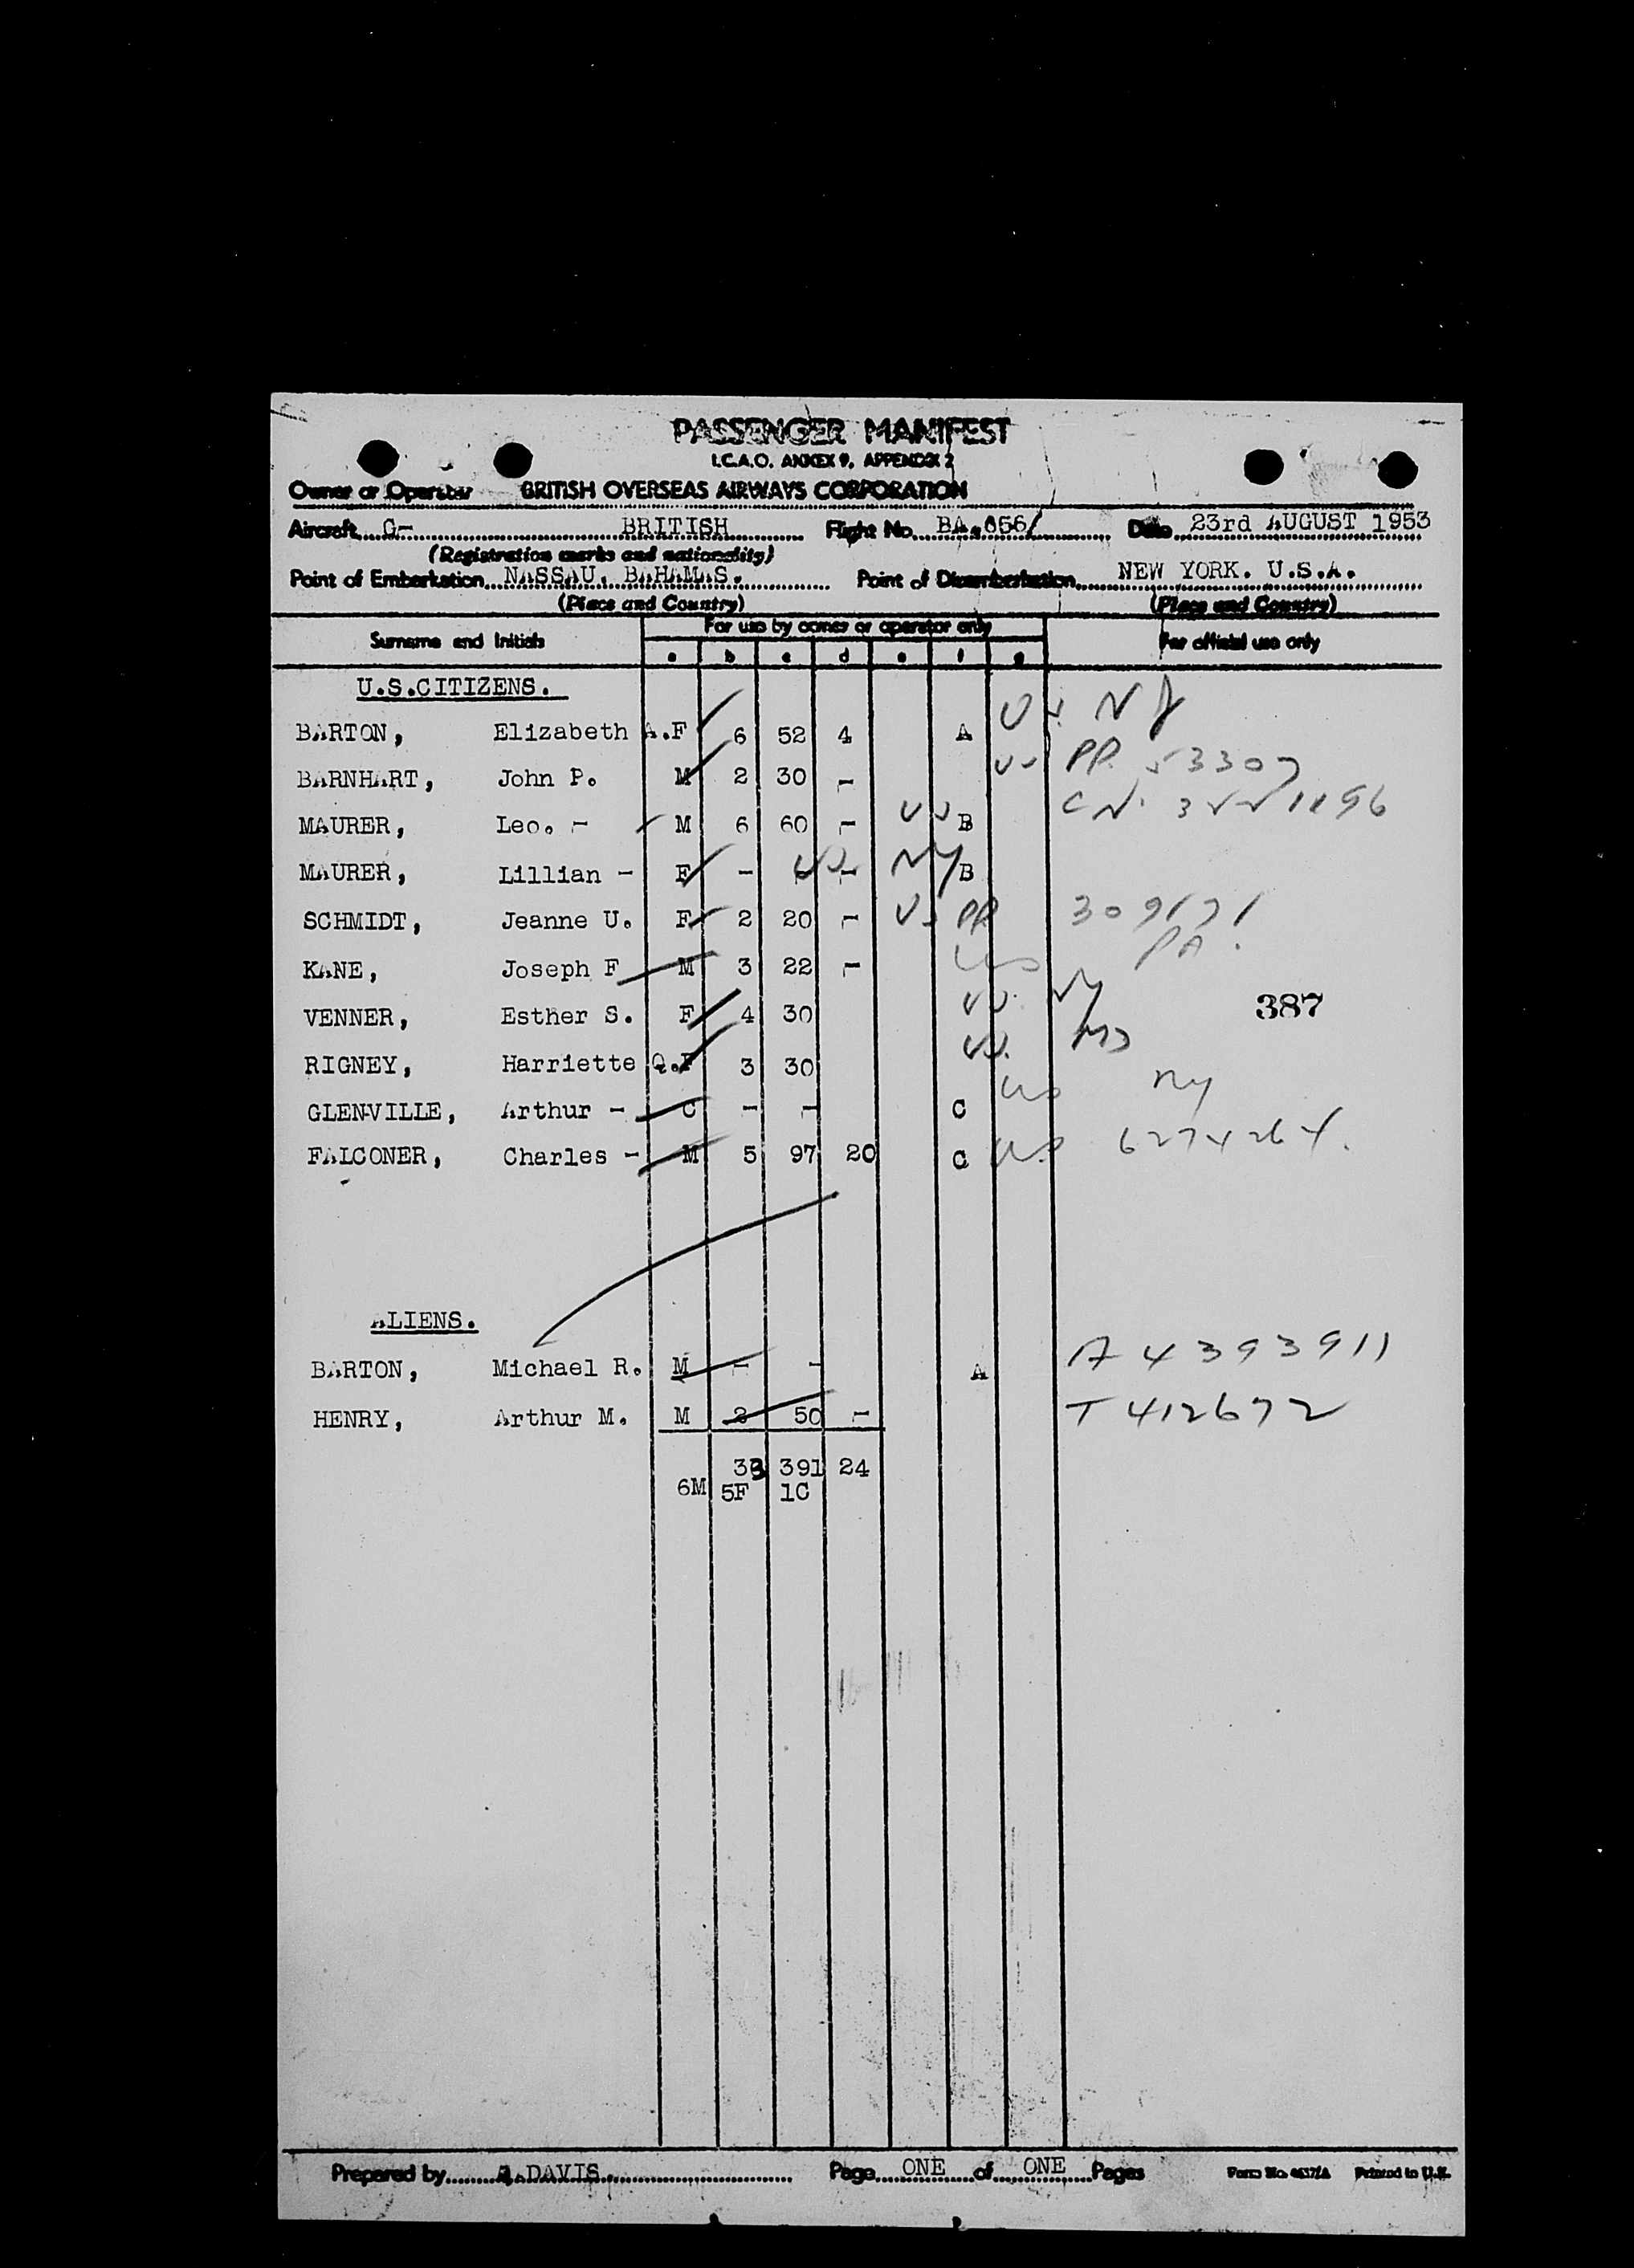 PASSENGER MANIFEST
I.C.A.O. ANNEX 9, APPENDIX 2
Owner or Operator BRITISH OVERSEAS AIRWAYS CORPORATION
Aircraft G- BRITISH Flight No. BA.656/ Date 23rd AUGUST 1953
(Registration marks and nationality)
Point of Embarkation NASSAU. BAHAMAS. Point of Disembarkation NEW YORK. U.S.A.
(Place and Country) (Place and Country)
For use by owner or operator only
Surname and Initials For official use only
a b c d e f g
U.S.CITIZENS.
BARTON, Elizabeth A.F 6 52 4 A US NY
BARNHART, John P. M 2 30 - US PP 53307
MAURER, Leo. - M 6 60 - US B CN.
MAURER, Lillian - F - US - NY B
SCHMIDT, Jeanne U. F 2 20 - US PP 309171
KANE, Joseph F M 3 22 - US PA.
VENNER, Esther S. F 4 30 US. NY
387
RIGNEY, Harriette Q.F 3 30 US. MD
GLENVILLE, Arthur - C - - C US NY
FALCONER, Charles - M 5 97 20 C US 6274264.
ALIENS.
BARTON, Michael R. M - - A A 4393911
HENRY, Arthur M. M 2 50 - T 412672
33 391 24
6M 5F 1C
Prepared by DAVIS. Page ONE of ONE Pages Form No. 4637/A Printed in U.K.